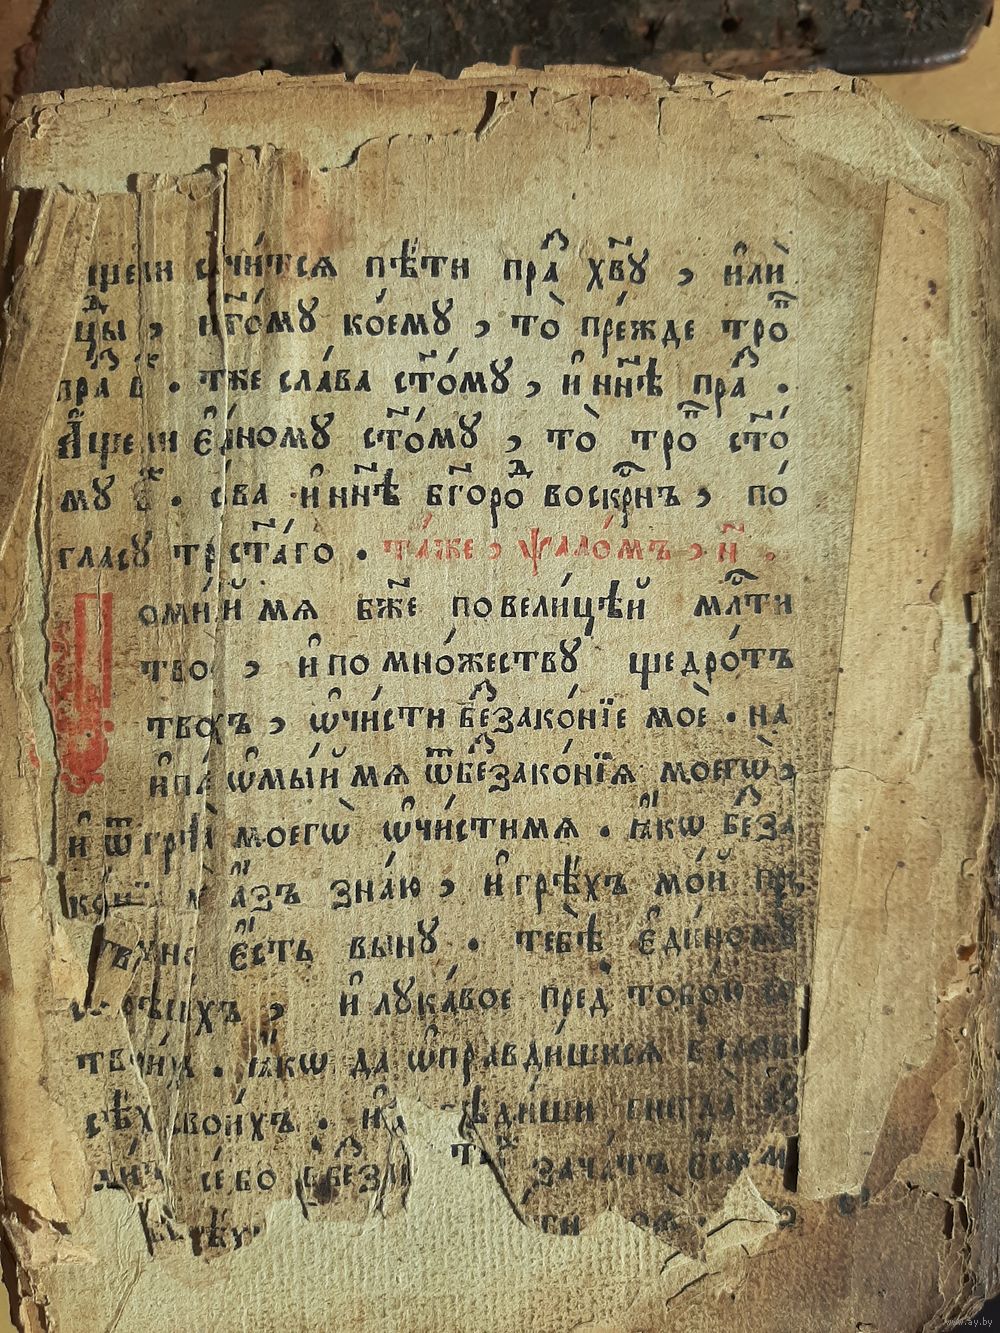 пѣти пра́ хв҃ꙋ , и҆лѝ
цы , ст҃о́мꙋ ко́емꙋ , то̀ пре́жде тропⷬ
пра̑ в҃ . тж҃е сла́ва ст҃о́мꙋ , и҆ нн҃ѣ пра̑ .
А҆́ще ли є҆ди́номꙋ ст҃о́мꙋ , то̀ тропⷬ ст҃о́
мꙋ в҃ . сла́ва и҆ нн҃ѣ бг҃оро́дⷣ воскрⷭ҇нъ , по
гласꙋ тр ст҃а́го . та́же , ѱало́мъ , н҃ .
поми́лꙋй мя бж҃е по вели́цѣй мл҃ти
твое́й , и҆ по мно́жествꙋ щедро́тъ
твои́хъ , ѡ҆чи́сти беззако́нїе моѐ . на
и҆па́че ѡ҆мы́й мя ѿ беззако́нїя моегѡ̀ ,
и҆ ѿ грѣха̀ моегѡ̀ ѡ҆чи́сти мя . ꙗ҆́кѡ безза
ко́нїе а҆́зъ зна́ю , и҆ грѣ́хъ мо́й пре
є҆́сть вы́нꙋ . тебѣ̀ є҆ди́номꙋ
и҆ лꙋка́вое пред тобо́ю со
твори́хъ . ꙗ҆́кѡ да ѡ҆правди́шися в словѣ
сѣ́хъ твои́хъ . и҆ побѣди́ши внегда̀ сꙋ
ди́ти се бо в безза зача́тъ є҆́смь